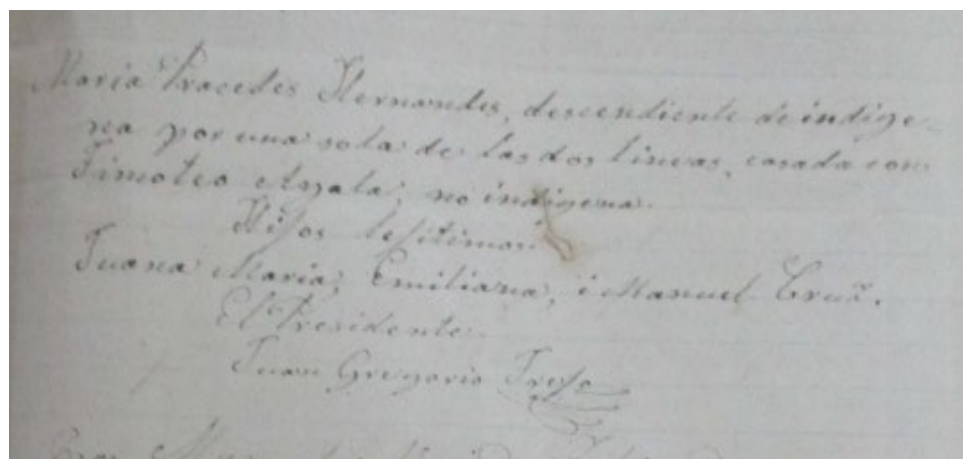 Maria Pracedes Hernandes, descendiente de indige-
na por una sola de las dos lineas, casada con
Timoteo Ayala; no indigena.
Hijos lejitimos:
Juana Maria, Emiliana, i Manuel Cruz.
El Presidente
Juan Gregorio Trejo